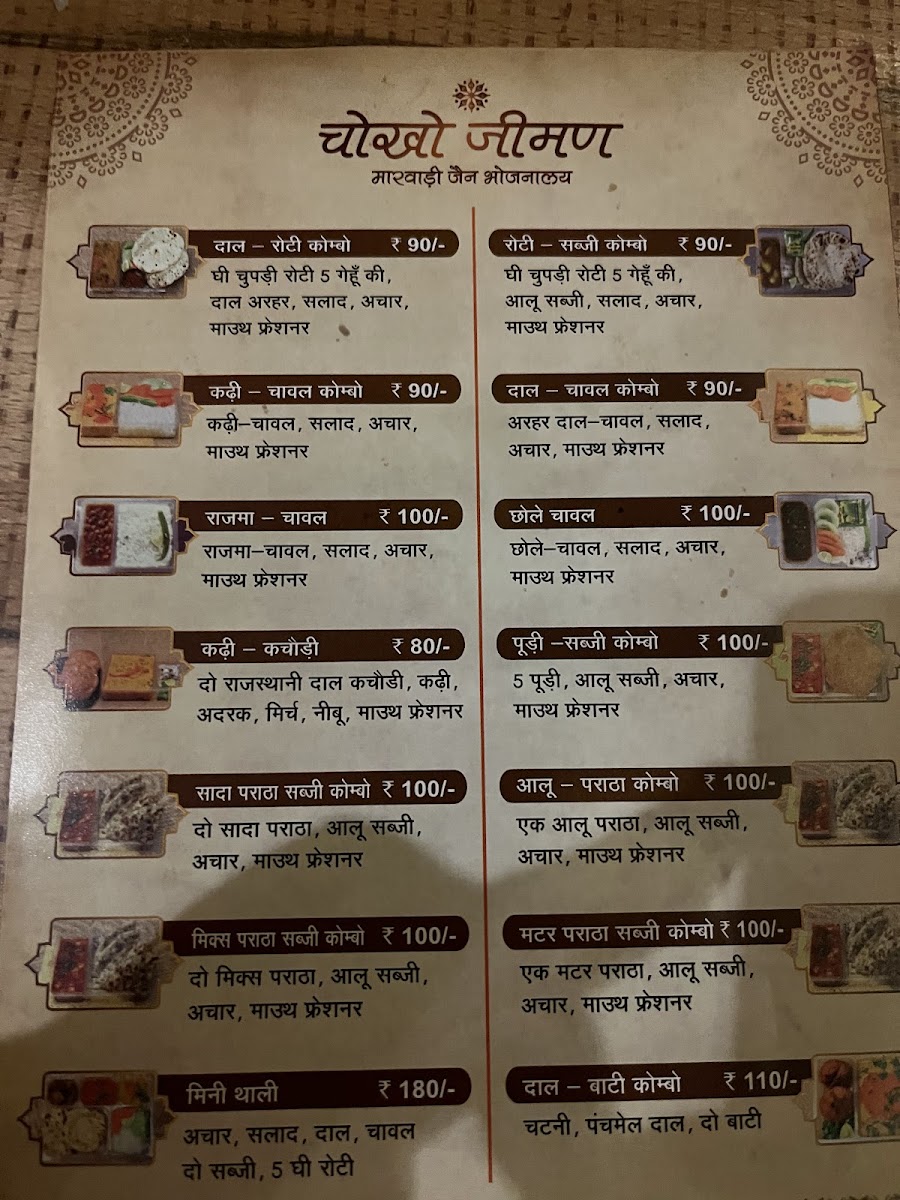 चोखो जीमण
मारवाड़ी जैन भोजनालय
दाल – रोटी कोम्बो ₹ 90/-
घी चुपड़ी रोटी 5 गेहूँ की,
दाल अरहर, सलाद, अचार,
माउथ फ्रेशनर
कढ़ी – चावल कोम्बो ₹ 90/-
कढ़ी–चावल, सलाद, अचार,
माउथ फ्रेशनर
राजमा – चावल ₹ 100/-
राजमा–चावल, सलाद, अचार,
माउथ फ्रेशनर
कढ़ी – कचौड़ी ₹ 80/-
दो राजस्थानी दाल कचौडी, कढ़ी,
अदरक, मिर्च, नीबू, माउथ फ्रेशनर
सादा पराठा सब्जी कोम्बो ₹ 100/-
दो सादा पराठा, आलू सब्जी,
अचार, माउथ फ्रेशनर
मिक्स पराठा सब्जी कोम्बो ₹ 100/-
दो मिक्स पराठा, आलू सब्जी,
अचार, माउथ फ्रेशनर
मिनी थाली ₹ 180/-
अचार, सलाद, दाल, चावल
दो सब्जी, 5 घी रोटी
रोटी – सब्जी कोम्बो ₹ 90/-
घी चुपड़ी रोटी 5 गेहूँ की,
आलू सब्जी, सलाद, अचार,
माउथ फ्रेशनर
दाल – चावल कोम्बो ₹ 90/-
अरहर दाल–चावल, सलाद,
अचार, माउथ फ्रेशनर
छोले चावल ₹ 100/-
छोले–चावल, सलाद, अचार,
माउथ फ्रेशनर
पूड़ी –सब्जी कोम्बो ₹ 100/-
5 पूड़ी, आलू सब्जी, अचार,
माउथ फ्रेशनर
आलू – पराठा कोम्बो ₹ 100/-
एक आलू पराठा, आलू सब्जी,
अचार, माउथ फ्रेशनर
मटर पराठा सब्जी कोम्बो ₹ 100/-
एक मटर पराठा, आलू सब्जी,
अचार, माउथ फ्रेशनर
दाल – बाटी कोम्बो ₹ 110/-
चटनी, पंचमेल दाल, दो बाटी